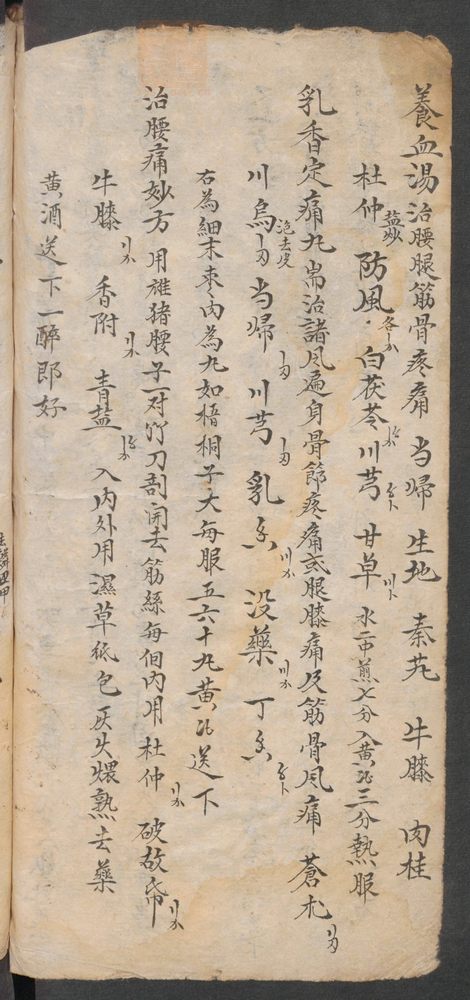 養血湯 治腰腿筋骨疼痛 当帰 生地 秦艽 牛膝 肉桂
杜仲 盐炒 防風 各 白茯苓 川芎 甘草 水二中煎七分入黄酒三分熱服
乳香定痛丸 耑治諸風遍身骨節疼痛或腿膝痛及筋骨风痛 蒼朮
川烏 泡去皮 当帰 川芎 乳香 没藥 丁香
右為細末枣肉為丸如梧桐子大每服五六十丸黄酒送下
治腰痛妙方 用雄猪腰子一对竹刀剖開去筋絲每個內用杜仲 破故帋
牛膝 香附 青盐 入内外用濕草纸包灰火煨熟去藥
黄酒送下一醉即好